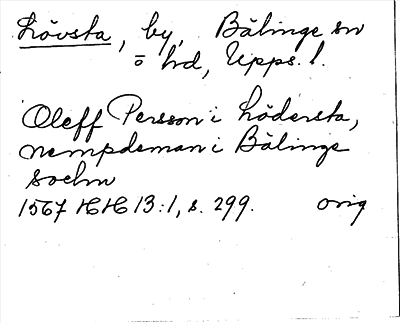 Lövsta, by, Bälinge sn
o hd, Upps. l.
Oleff Persson i Lödersta,
nempdeman i Bälinge
sochn
1567 HH 13:1, s. 299. orig